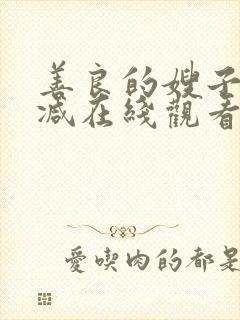 善良的嫂子
减在线觀看
愛喫肉的都是